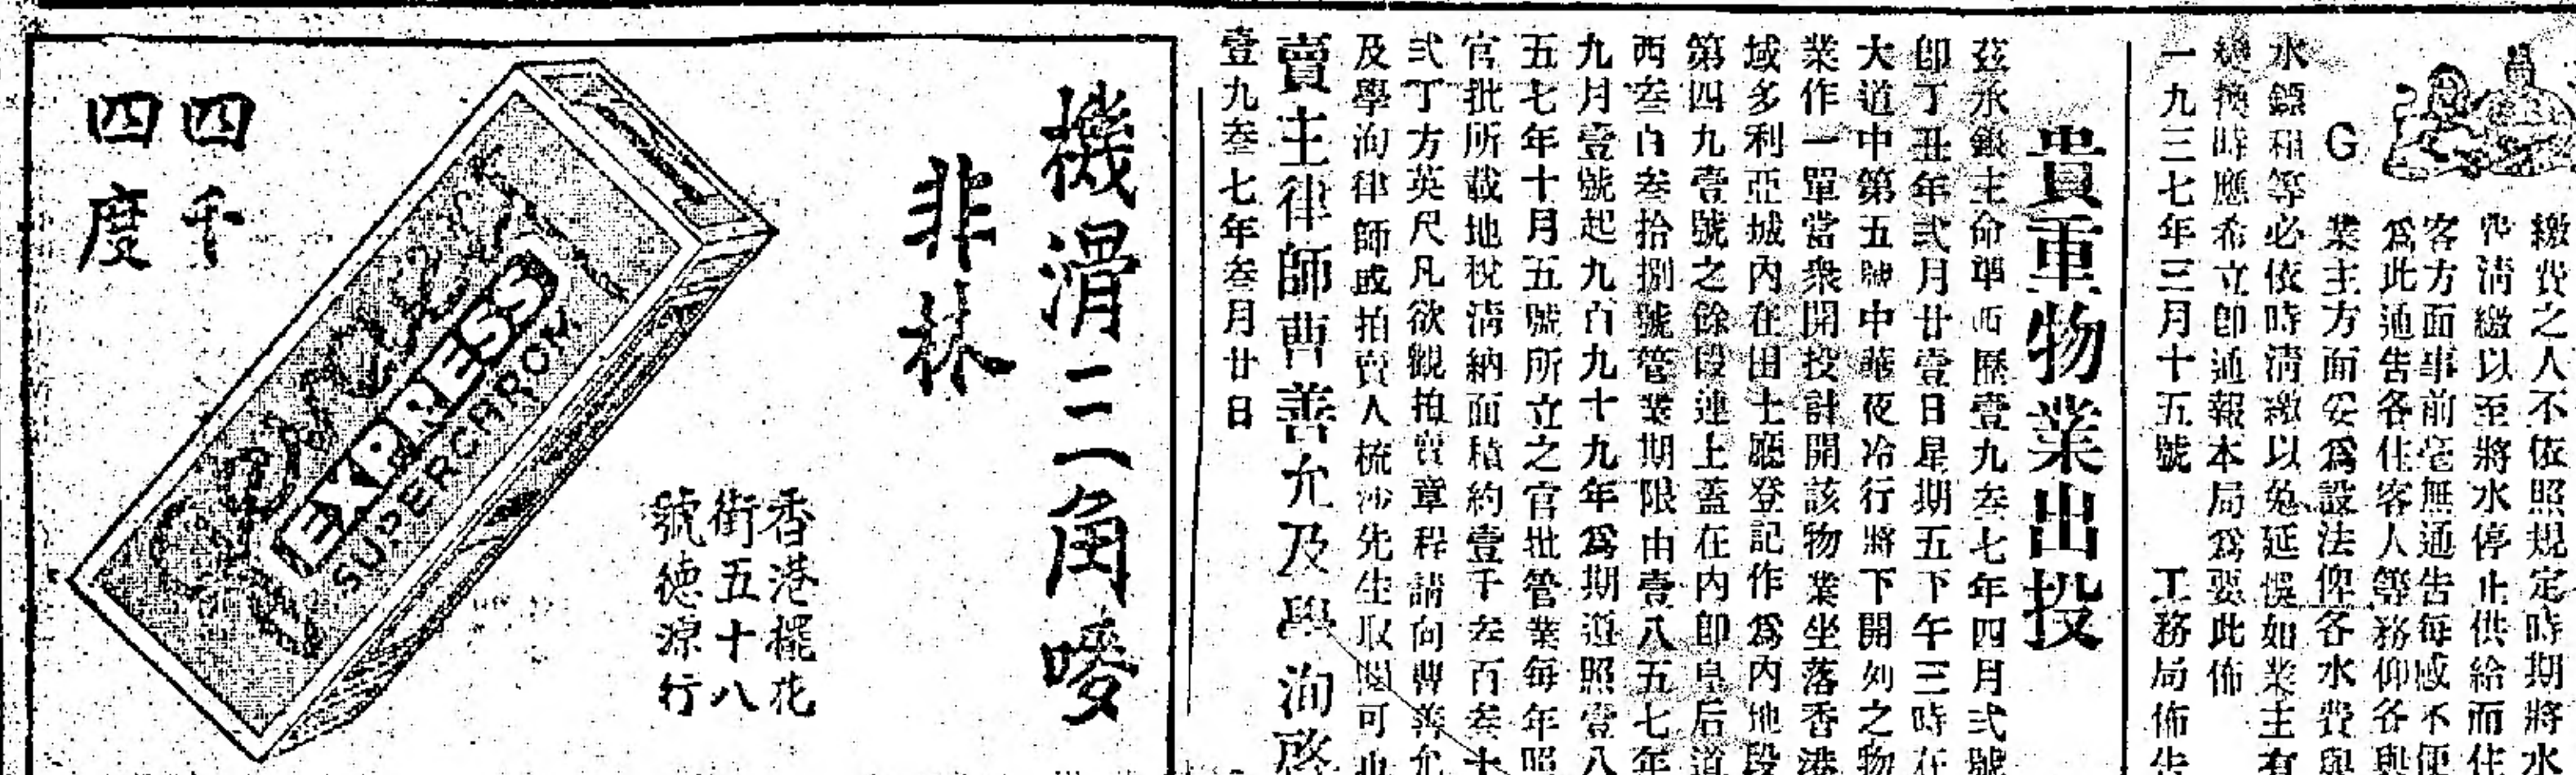 繳費之人不依照規定時期將水
清繳以至將水停止供給而住
客方面事前毫無通告每感不便
爲此通告各住客人等務仰各與
業主方面妥爲設法俾各水費與
G
水鏢租等必依時清繳以免延悞如業主有
換時應希立即通報本局爲要此佈
一九三七年三月十五號　工務局佈告
貴重物業出投
茲承銀主命準西歷壹九叁七年四月弍號
即丁丑年弍月廿壹日星期五下午三時在
大道中第五號中華夜冷行將下開列之物
業作一單當衆開投計開該物業坐落香港
域多利亞城內在田土廳登記作爲內地段
第四九壹號之餘段連上蓋在內即皇后道
西叁百叁拾捌號管業期限由壹八五七年
九月壹號起九百九十九年爲期遵照壹八
五七年十月五號所立之官批管業每年照
官批所載地稅清納面積約壹千叁百叁十
弍丁方英尺凡欲觀拍賣章程請向曹善允
及學洵律師或拍賣人梳沙先生取閱可也
賣主律師曹善允及學洵啓
壹九叁七年叁月廿日
機滑二一角嘜
非林
香港擺花
街五十八
號德源行
四千
四度
GEVAERT
EXPRESS
SUPERCHROM